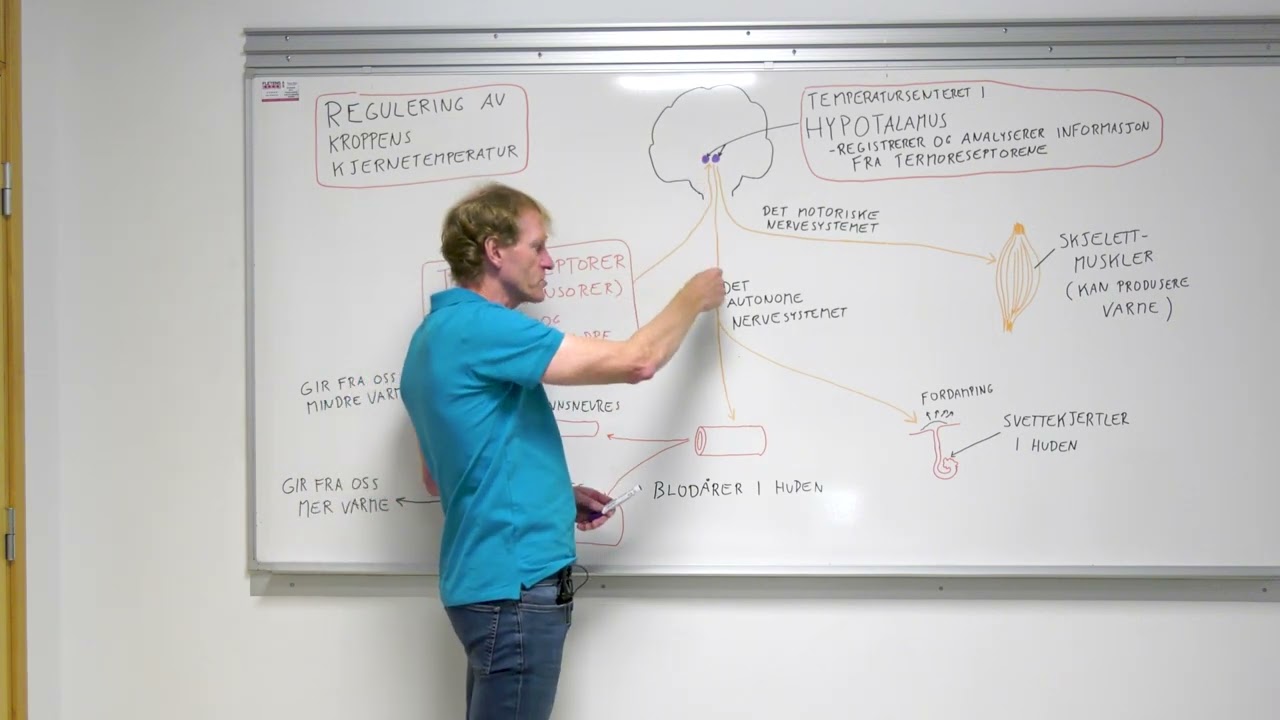 REGULERING AV
KROPPENS
KJERNETEMPERATUR
TEMPERATURSENTERET I
HYPOTALAMUS
-REGISTRERER OG ANALYSERER INFORMASJON
FRA TERMORESEPTORENE
DET MOTORISKE
NERVESYSTEMET
SKJELETT-
MUSKLER
(KAN PRODUSERE
VARME)
DET
AUTONOME
NERVESYSTEMET
OG
GIR FRA OSS
MINDRE
BLODÅRER I HUDEN
FORDAMPING
SVETTEKJERTLER
I HUDEN
GIR FRA OSS
MER VARME